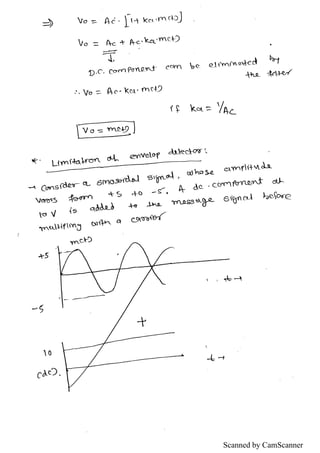 ⇒ Vo = Ac·[1+ ka·m(t)]
Vo = Ac + Ac·ka·m(t)
↓
D.C. component can be eliminated by
the filter
∴ Vo = Ac·ka·m(t)
if ka = 1/Ac
Vo = m(t)
* Limitation of envelop detector:
→ Consider a sinusoidal signal, whose amplitude
varies from +5 to -5. A dc·component of
10 V is added to the message signal before
multipling with a carrier
m(t)
+5
t→
-5
+
10
(dc).
t→
Scanned by CamScanner